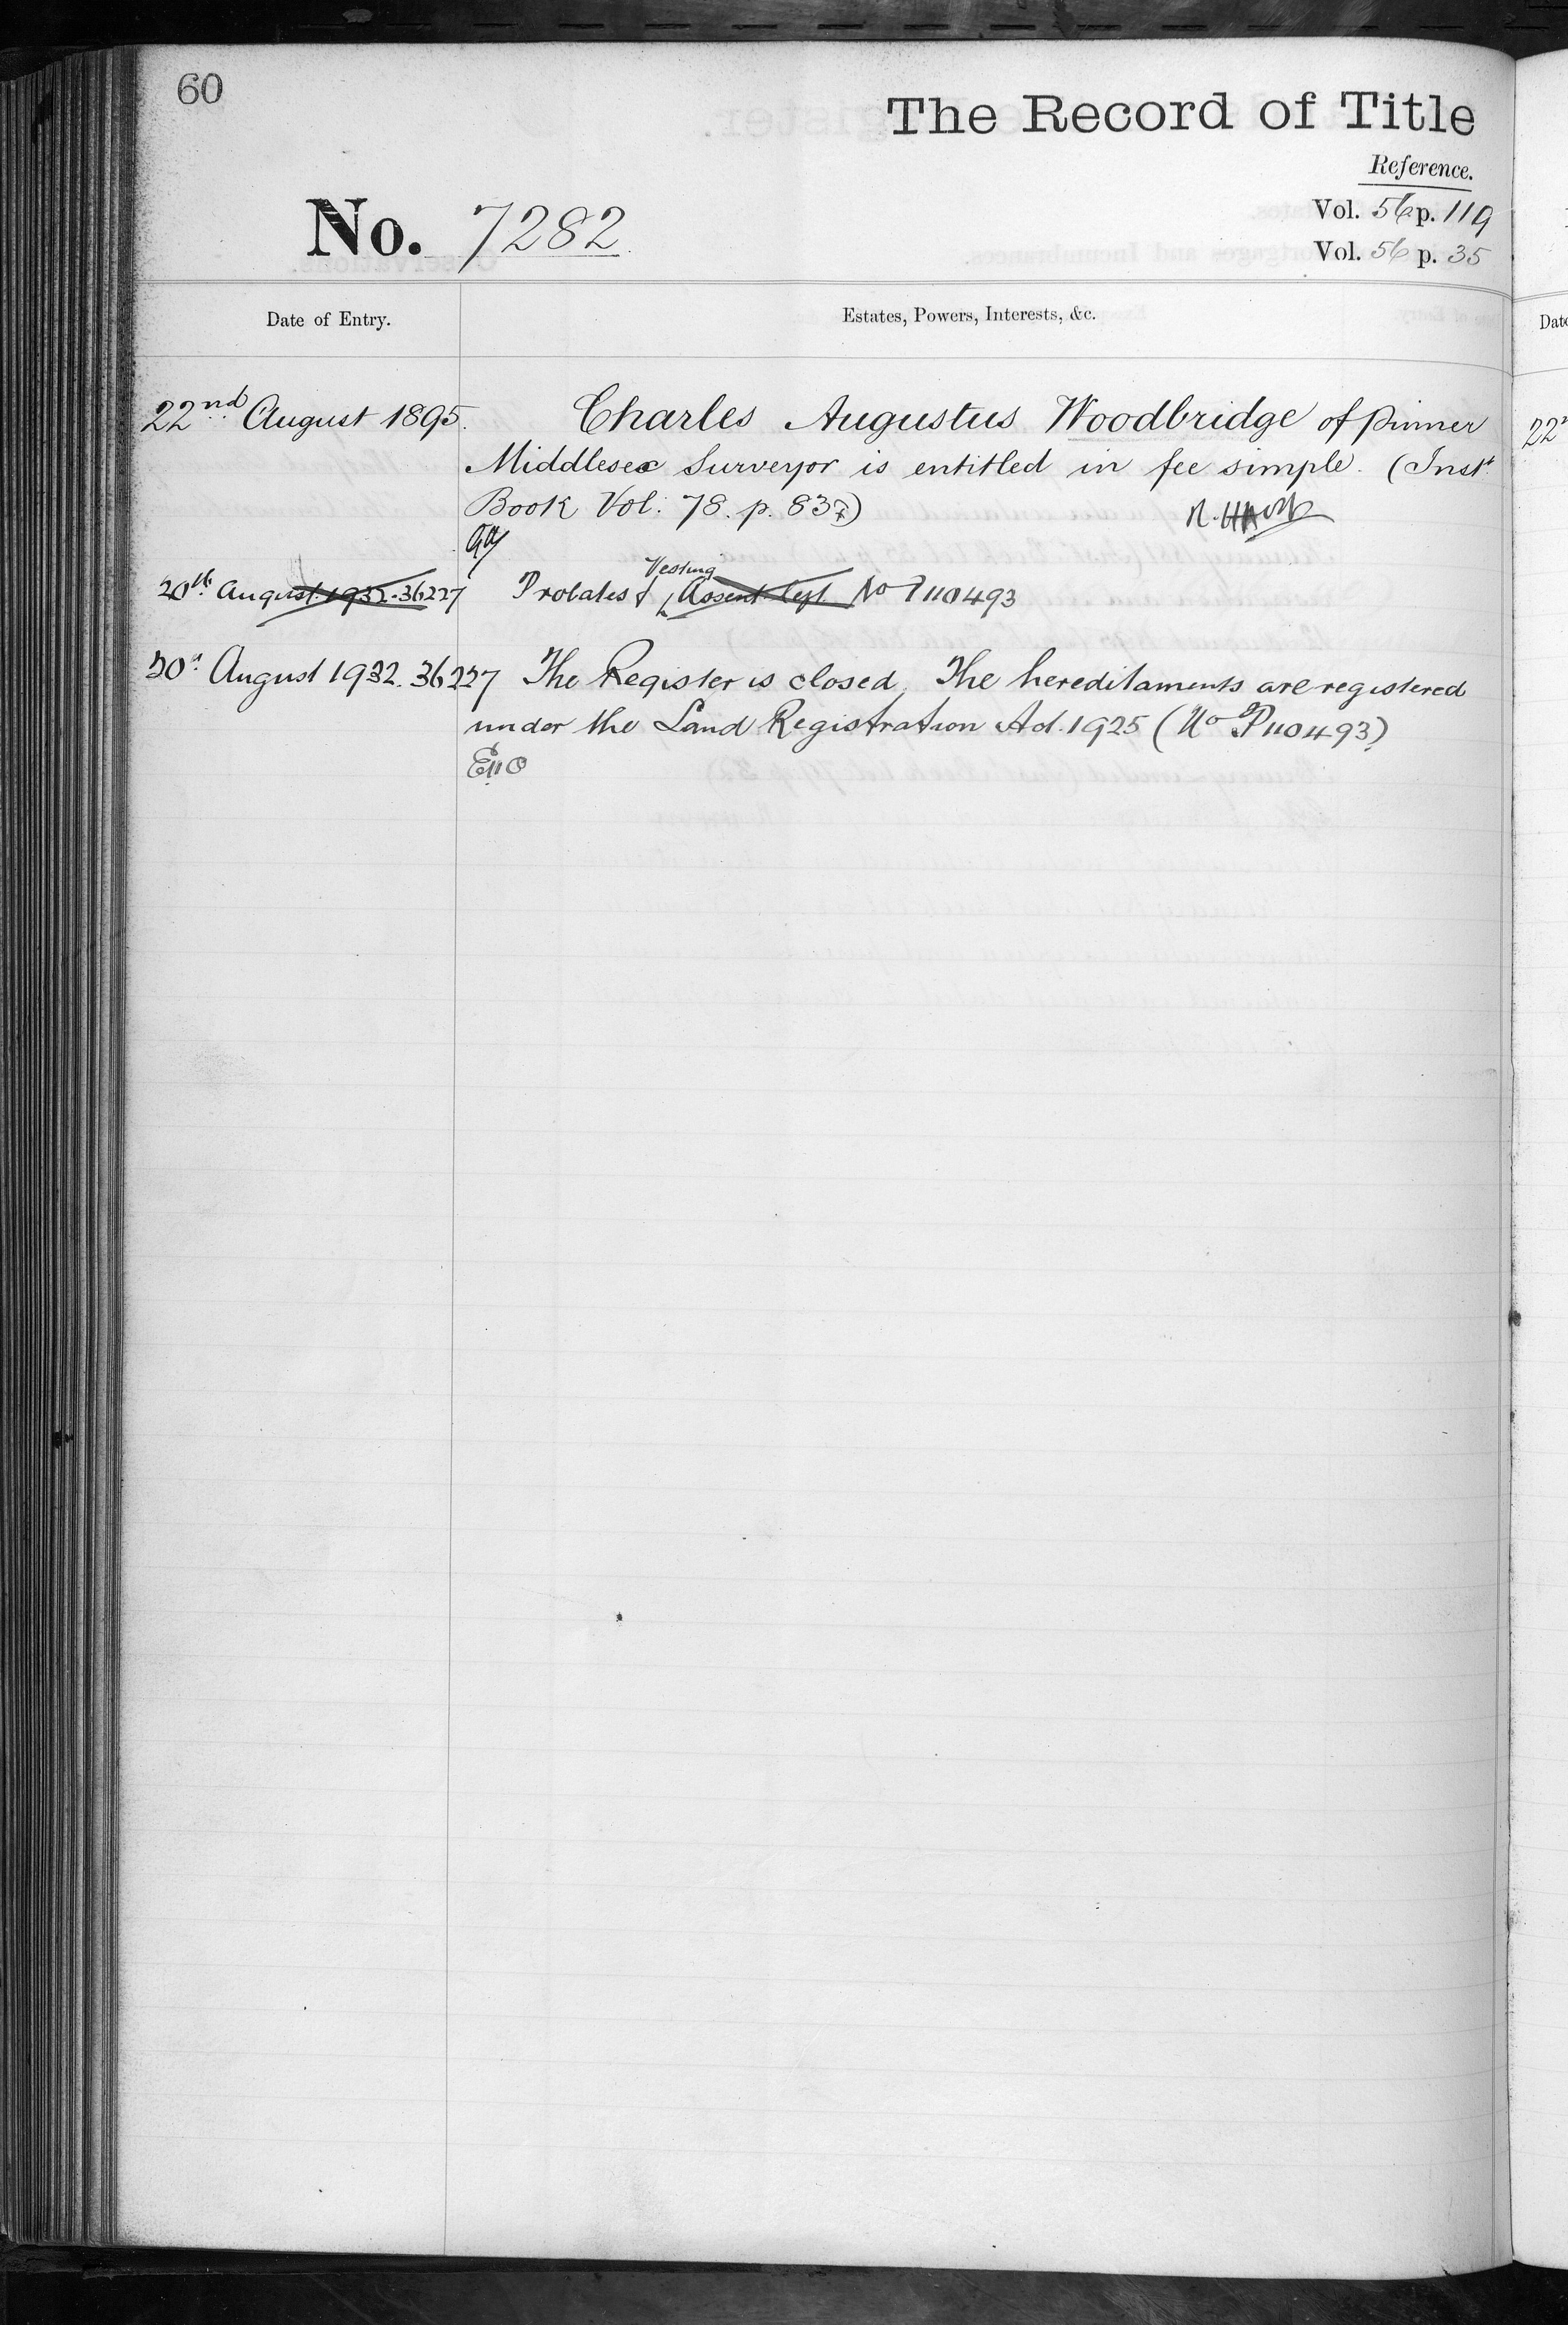 60
The Record of Title
Reference.
No. 7282
Vol. 56 p. 119
Vol. 56 p. 35
Date of Entry.
Estates, Powers, Interests, &c.
22nd August 1895.
Charles Augustus Woodbridge of Pinner
Middlesex Surveyor is entitled in fee simple. (Inst.
Book Vol: 78. p. 837)
20th August 1932. 36227
Vesting
Probates & Assent No P110493
20th August 1932. 36227
The Register is closed. The hereditaments are registered
under the Land Registration Act. 1925 (No P110493)
Date
22n